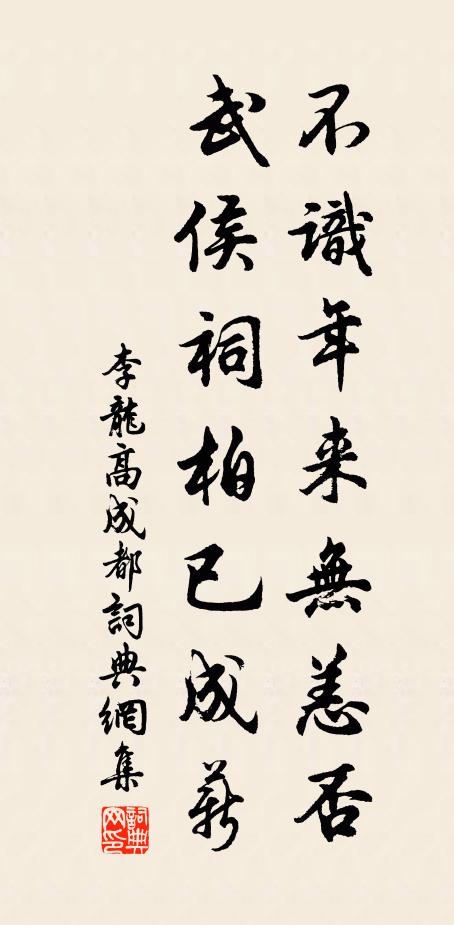 不識年来無恙否
武侯祠柏已成薪
李龍高成都詞典網集
詞典網印